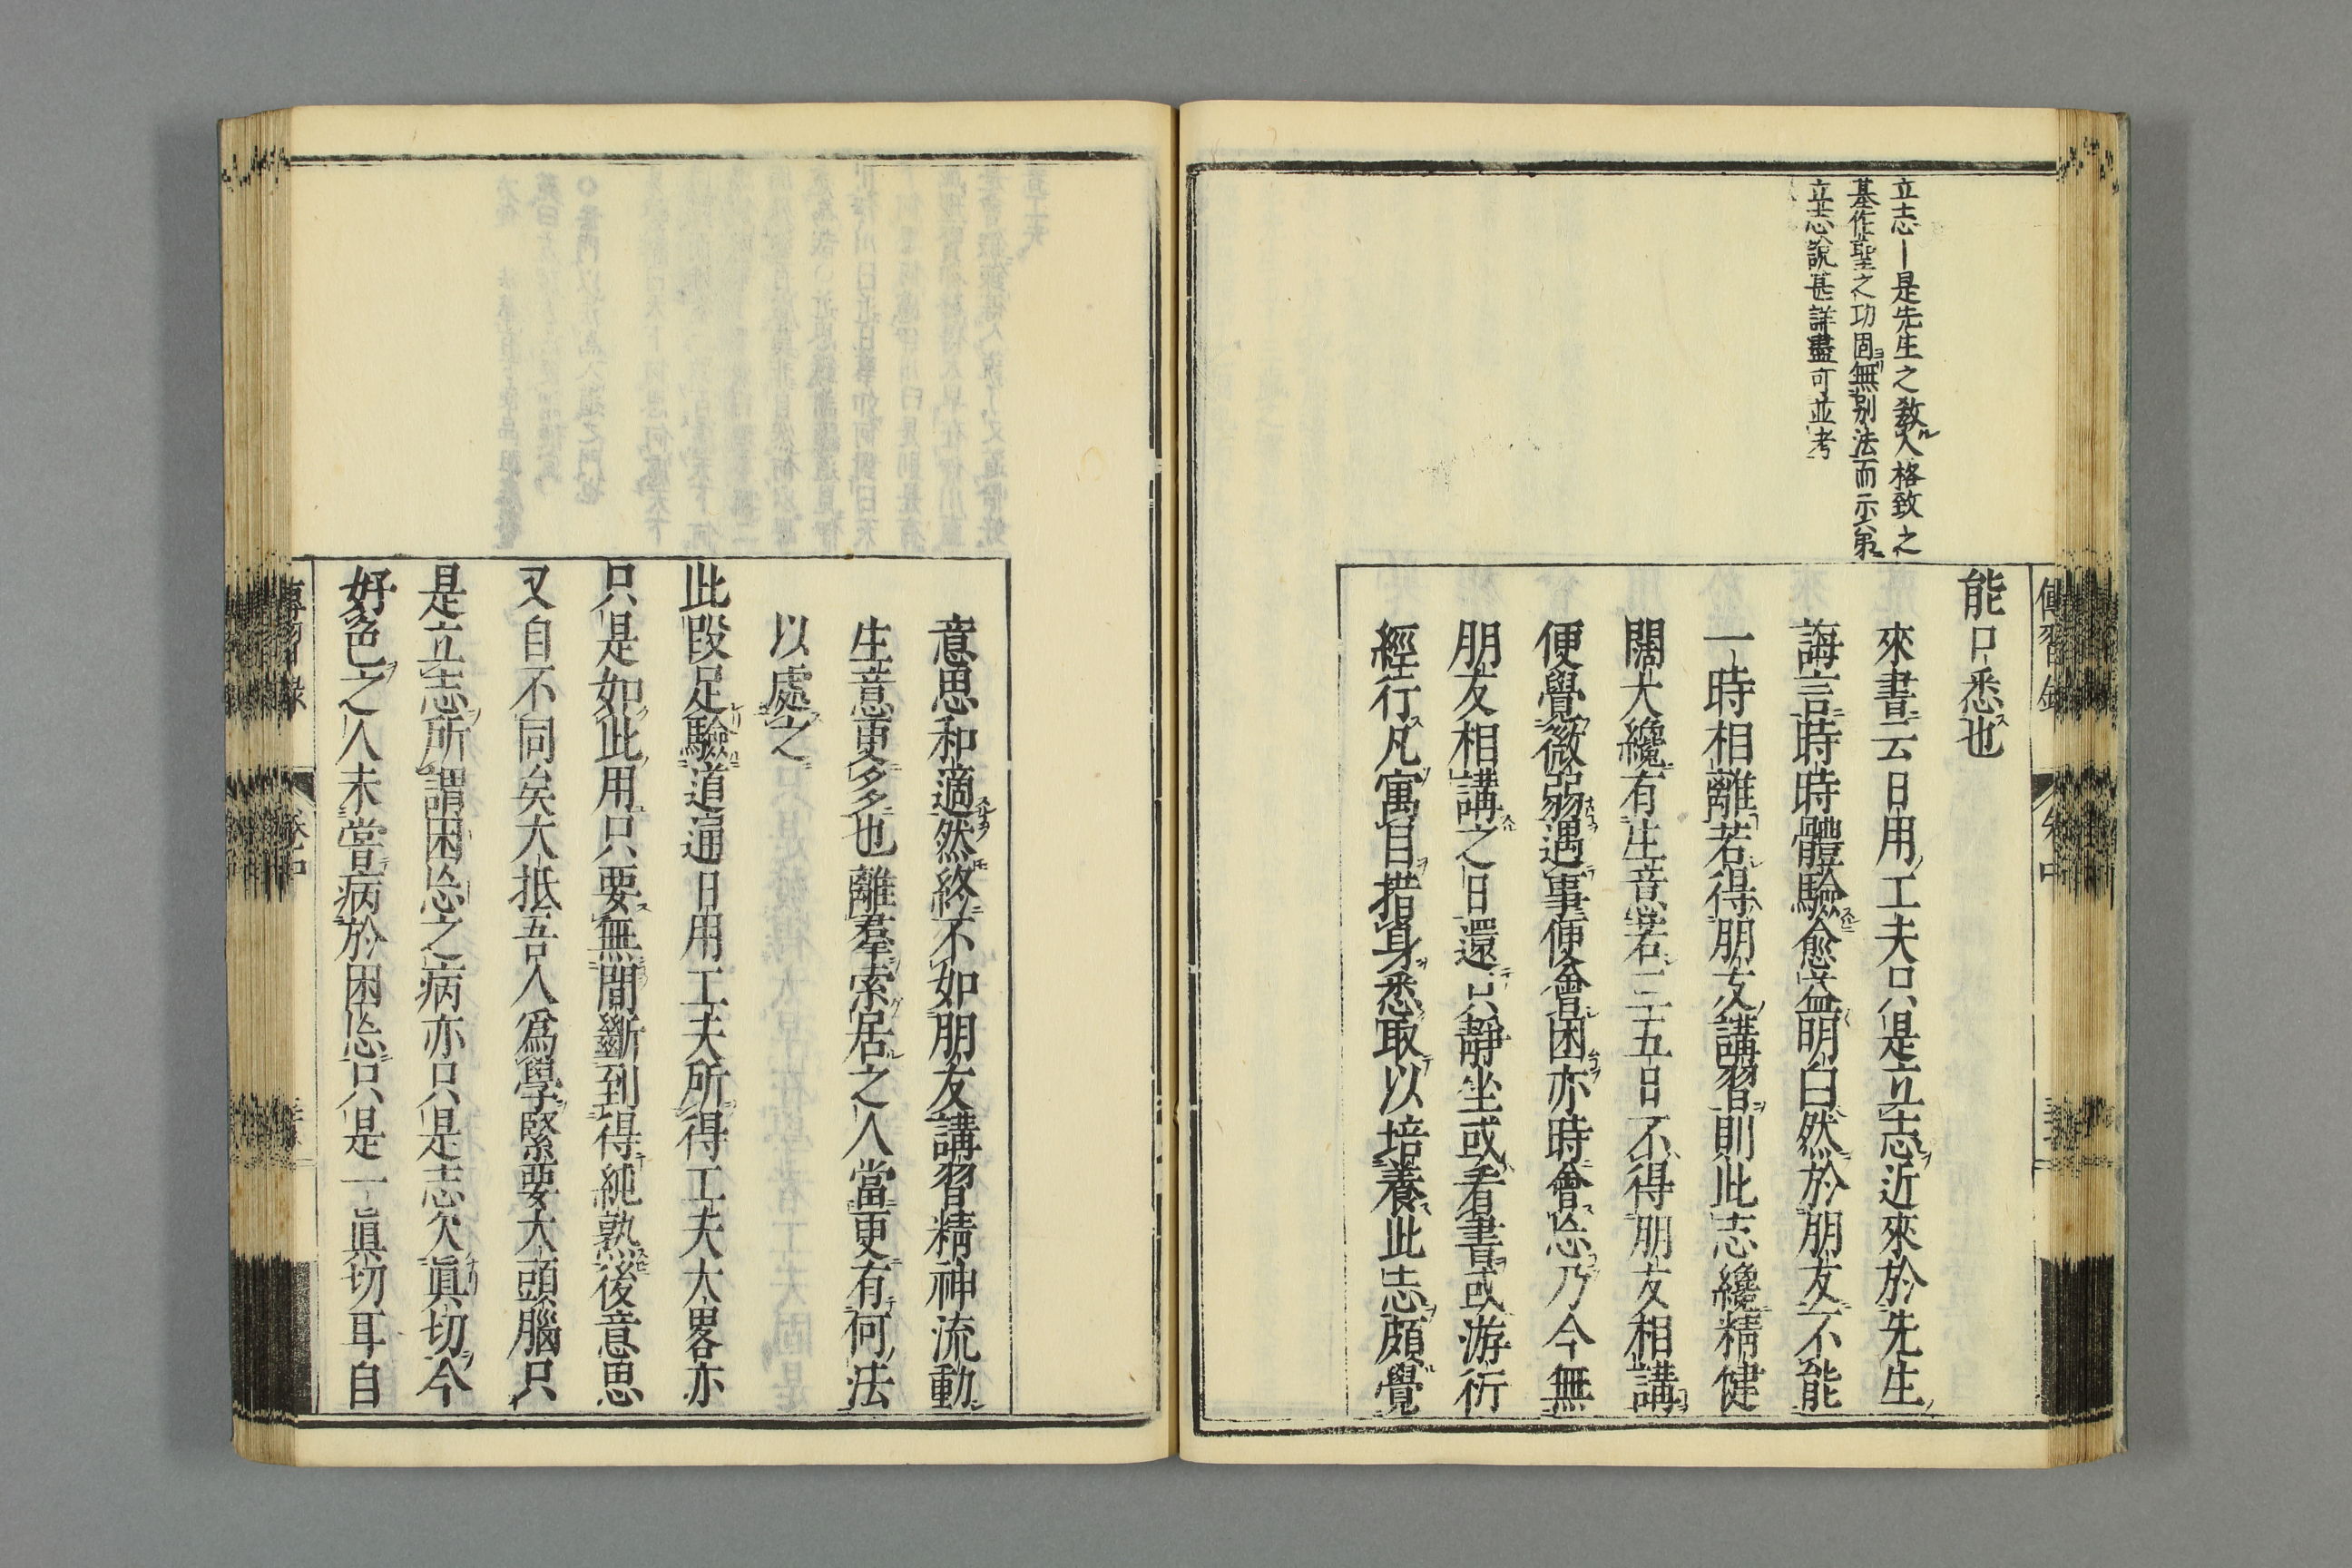 立志｜是先生之教人格致之
基作聖之功固無別法而示第
立志說甚詳盡可並考
能口悉也
來書云日用工夫只是立志近來於先生
誨言時時體驗愈益明白然於朋友不能
一時相離若得朋友講習則此志纔精健
闊大纔有生意若三五日不得朋友相講
便覺微弱遇事便會困亦時會忘乃今無
朋友相講之日還只靜坐或看書或游衍
經行凡寓目措身悉取以培養此志頗覺
意思和適然終不如朋友講習精神流動
生意更多也離羣索居之人當更有何法
以處之
此段足驗道通日用工夫所得工夫大畧亦
只是如此用只要無間斷到得純熟後意思
又自不同矣大抵吾人爲學緊要大頭腦只
是立志所謂困忘之病亦只是志欠眞切今
好色之人未嘗病於困忘只是一眞切耳自
傳習錄
卷中